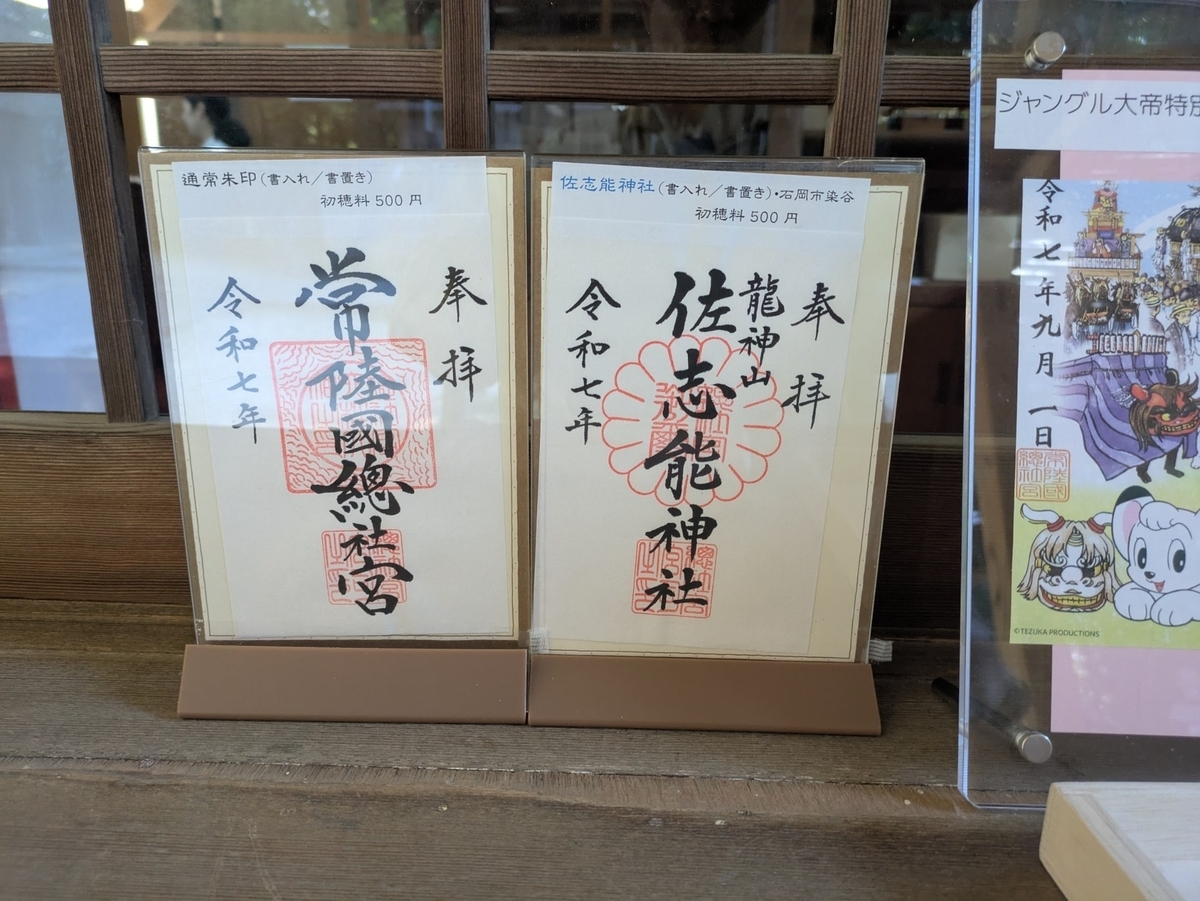 通常朱印(書入れ/書置き)
初穂料500円
奉拝
常陸國總社宮
令和七年
佐志能神社(書入れ/書置き)・石岡市染谷
初穂料500円
奉拝
龍神山
佐志能神社
令和七年
ジャングル大帝特別
令和七年九月一日
常陸國
總社宮
©TEZUKA PRODUCTIONS